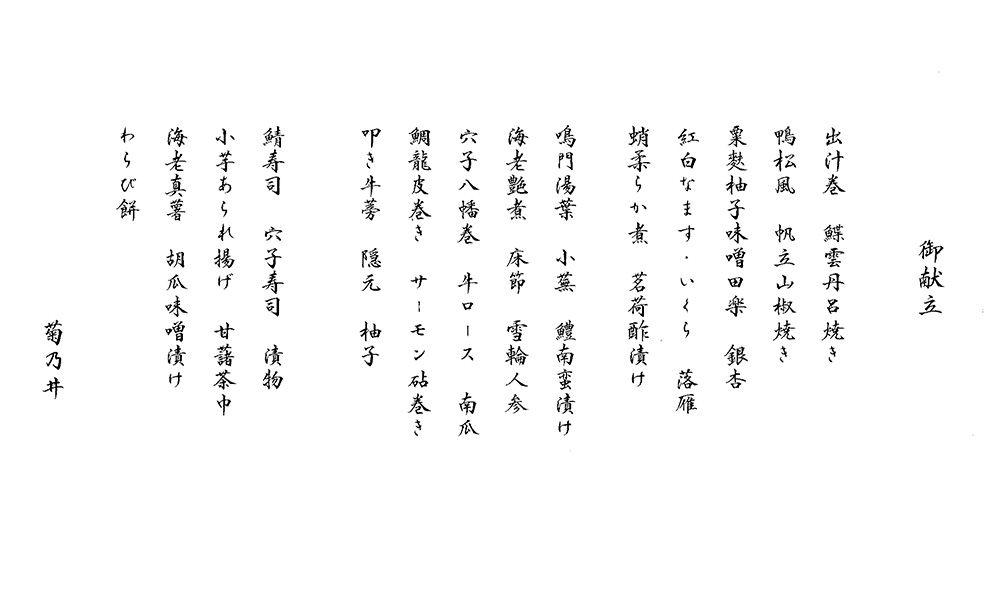 御献立
出汁巻　鰈雲丹呂焼き
鴨松風　帆立山椒焼き
粟麩柚子味噌田楽　銀杏
紅白なます・いくら　落雁
蛸柔らか煮　茗荷酢漬け
鳴門湯葉　小蕪　鱧南蛮漬け
海老艶煮　床節　雪輪人参
穴子八幡巻　牛ロース　南瓜
鯛龍皮巻き　サーモン砧巻き
叩き牛蒡　隠元　柚子
鯖寿司　穴子寿司　漬物
小芋あられ揚げ　甘藷茶巾
海老真薯　胡瓜味噌漬け
わらび餅
菊乃井